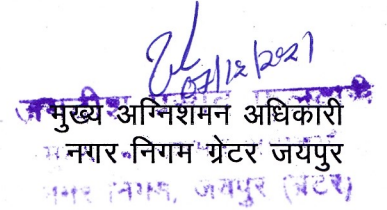 07/12/2021
मुख्य अग्निशमन अधिकारी
नगर निगम ग्रेटर जयपुर
नगर निगम, जयपुर (ग्रेटर)